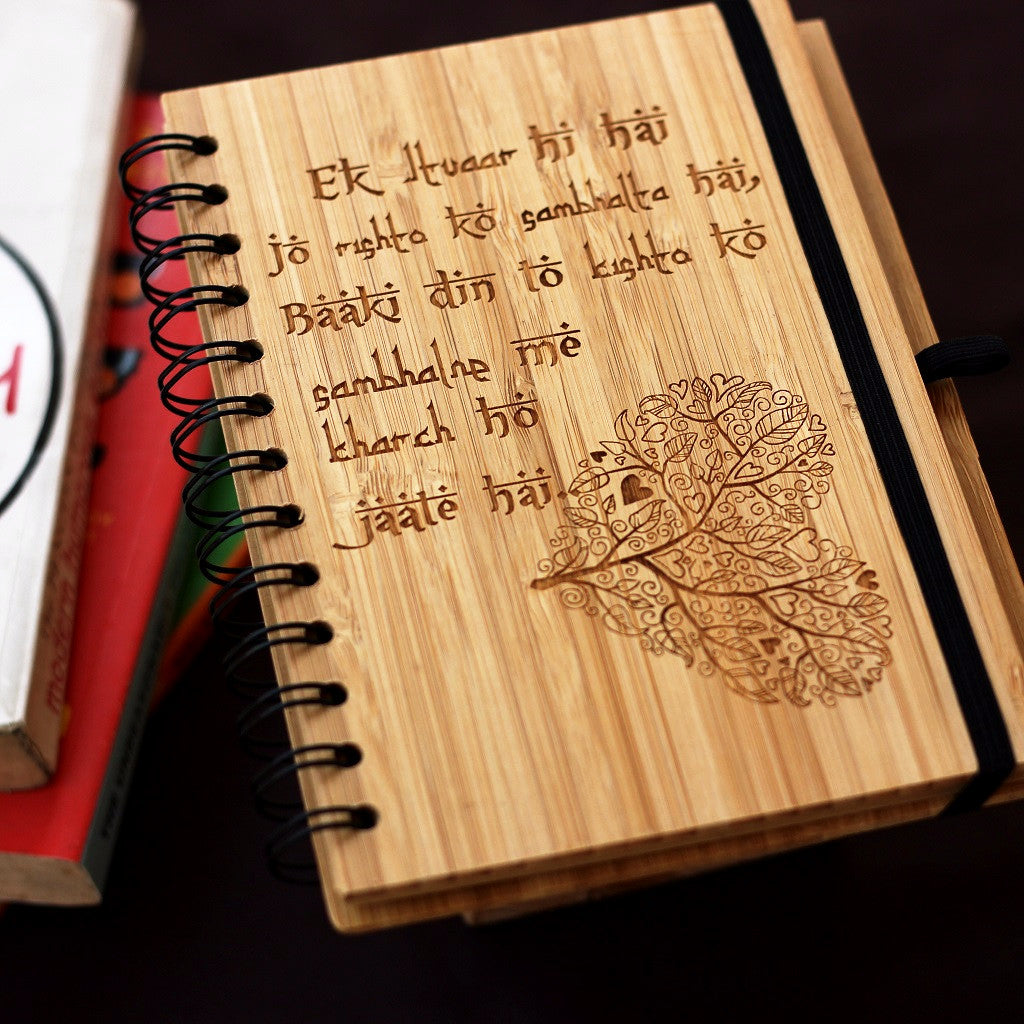 Ek Itvaar hi hai
jo rishto ko sambhalta hai,
Baaki din to kishto ko
sambhalne me
kharch ho
jaate hai.